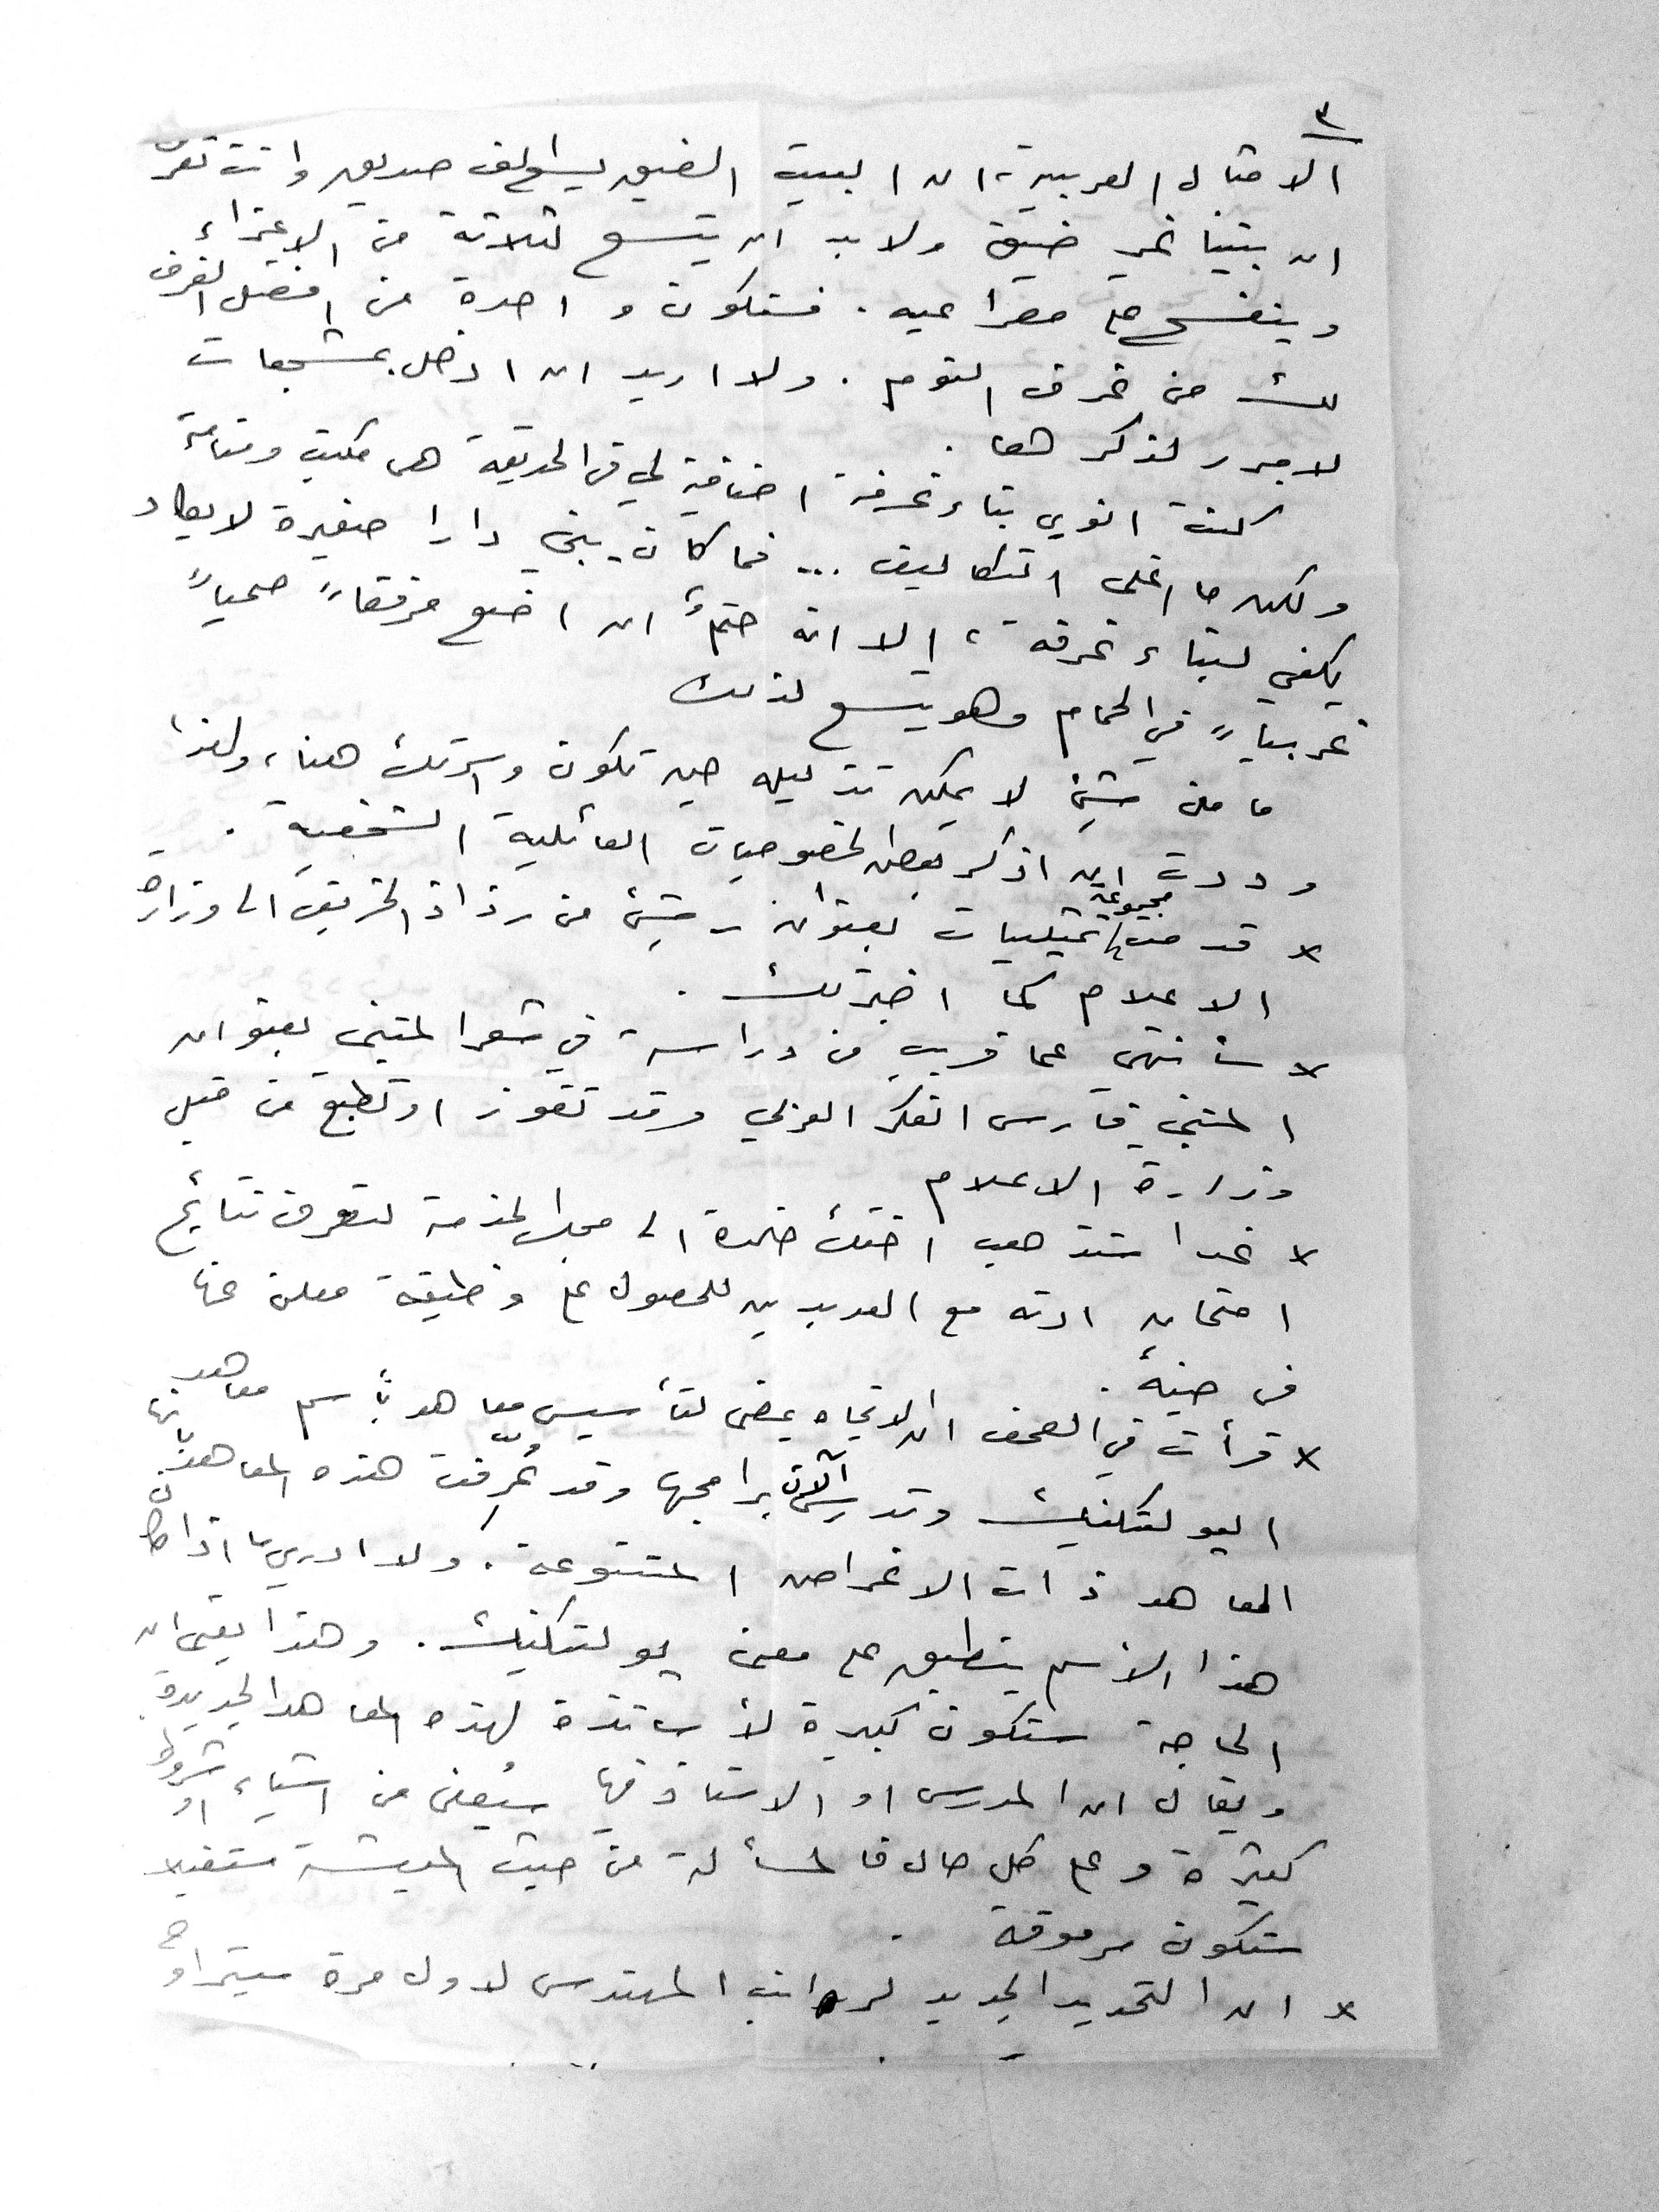 ٣
الامثال العربية، ان البيت الضيق يسع الف صديق وانت تعرف
ان بيتنا غير ضيق ولابد ان يتسع لثلاثة من الاعزاء
وينفتح على مصراعيه. فستكون واحدة من افضل الغرف
لك من غرف النوم. ولا اريد ان ادخل بمشجعات
لا مبرر لذكرها.
كنت انوي بناء غرفة اضافية لي في الحديقة هي مكتب ومنامة
ولكن ما اغلى التكاليف ... فما كان يبني دارا صغيرة لا يكاد
يكفي لبناء غرفة، إلا انه حتمٌ ان اضع مرفقاً صحياً
غربياً في الحمام وهو يتسع لذلك
ما من شيئ لا يمكن تذليله حين تكون واسرتك هنا، ولهذا
وددت ان اذكر بعض الخصوصيات العائلية الشخصية.
× قدمت مجموعة تمثيليات بعنوان - شيئ من رذاذ الخريف الى وزارة
الاعلام كما اخبرتك.
× سأنتهي عما قريب من دراسة في شعر المتنبي بعنوان
المتنبي فارس الفكر العربي وقد تفوز او تطبع من قبل
وزارة الاعلام
× غدا ستذهب اختك الى مجلس الخدمة لتعرف نتائج
امتحان ادته مع العديدين للحصول على وظيفة معلن عنها
في حينهُ.
× قرأت في الصحف ان الاتجاه يمضي لتأسيس معاهد بأسم معاهد
البولتكنيك وتدرس الآن برامجها وقد عُرّفت هذه المعاهد بأنها
المعاهد ذات الاغراض المتنوعة. ولا ادري ما اذا كان
هذا الاسم ينطبق على معنى بولتكنيك. وهذا يعني ان
الحاجة ستكون كبيرة لأساتذة لهذه المعاهد الجديدة.
ويقال ان المدرس او الاستاذ فيها سيُعفى من اشياء او شروط
كثيرة وعلى كل حال فالمسألة من حيث المعيشة مستقبلا
ستكون مرموقة.
× ان التحديد الجديد لراتب المهندس لاول مرة سيتراوح